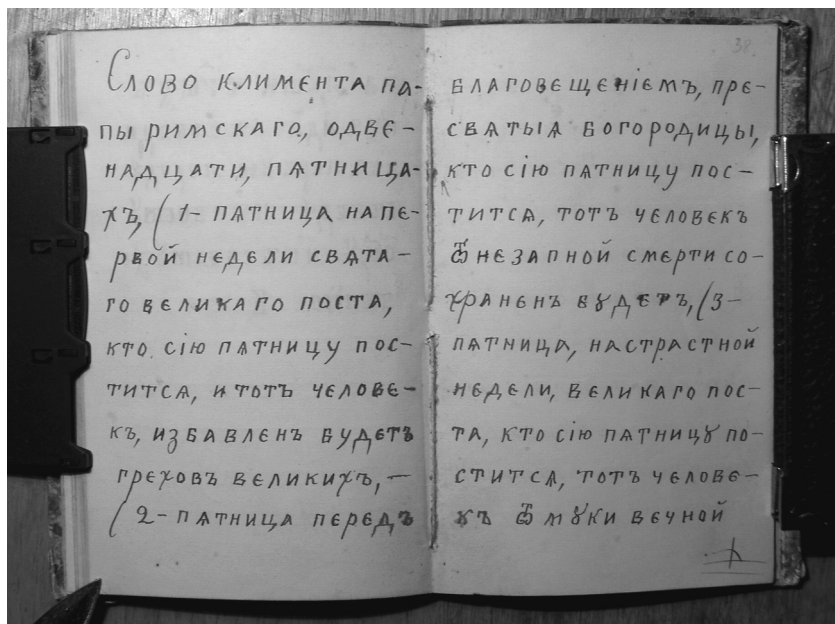 Слово климента па-
пы римскаго, одвє-
надцати, пѧтница-
хъ, (1- пѧтница напє-
рвой недели свѧта-
го великаго поста,
кто сію пѧтницу пос-
титсѧ, итотъ человє-
къ, избавлєнъ будєтъ
грєховъ вєликихъ, —
(2- пѧтница пєрєдъ
38.
благовєщєніємъ, прє-
свѧтыѧ богородицы,
кто сію пѧтницу пос-
титсѧ, тотъ чєловєкъ
ѿ нєзапной смєрти со-
хранєнъ бꙋдєтъ, (3-
пѧтница, настрастной
нєдєли, вєликаго пос-
та, кто сію пѧтницꙋ по-
ститсѧ, тотъ чєловє-
къ ѿ мꙋки вєчной